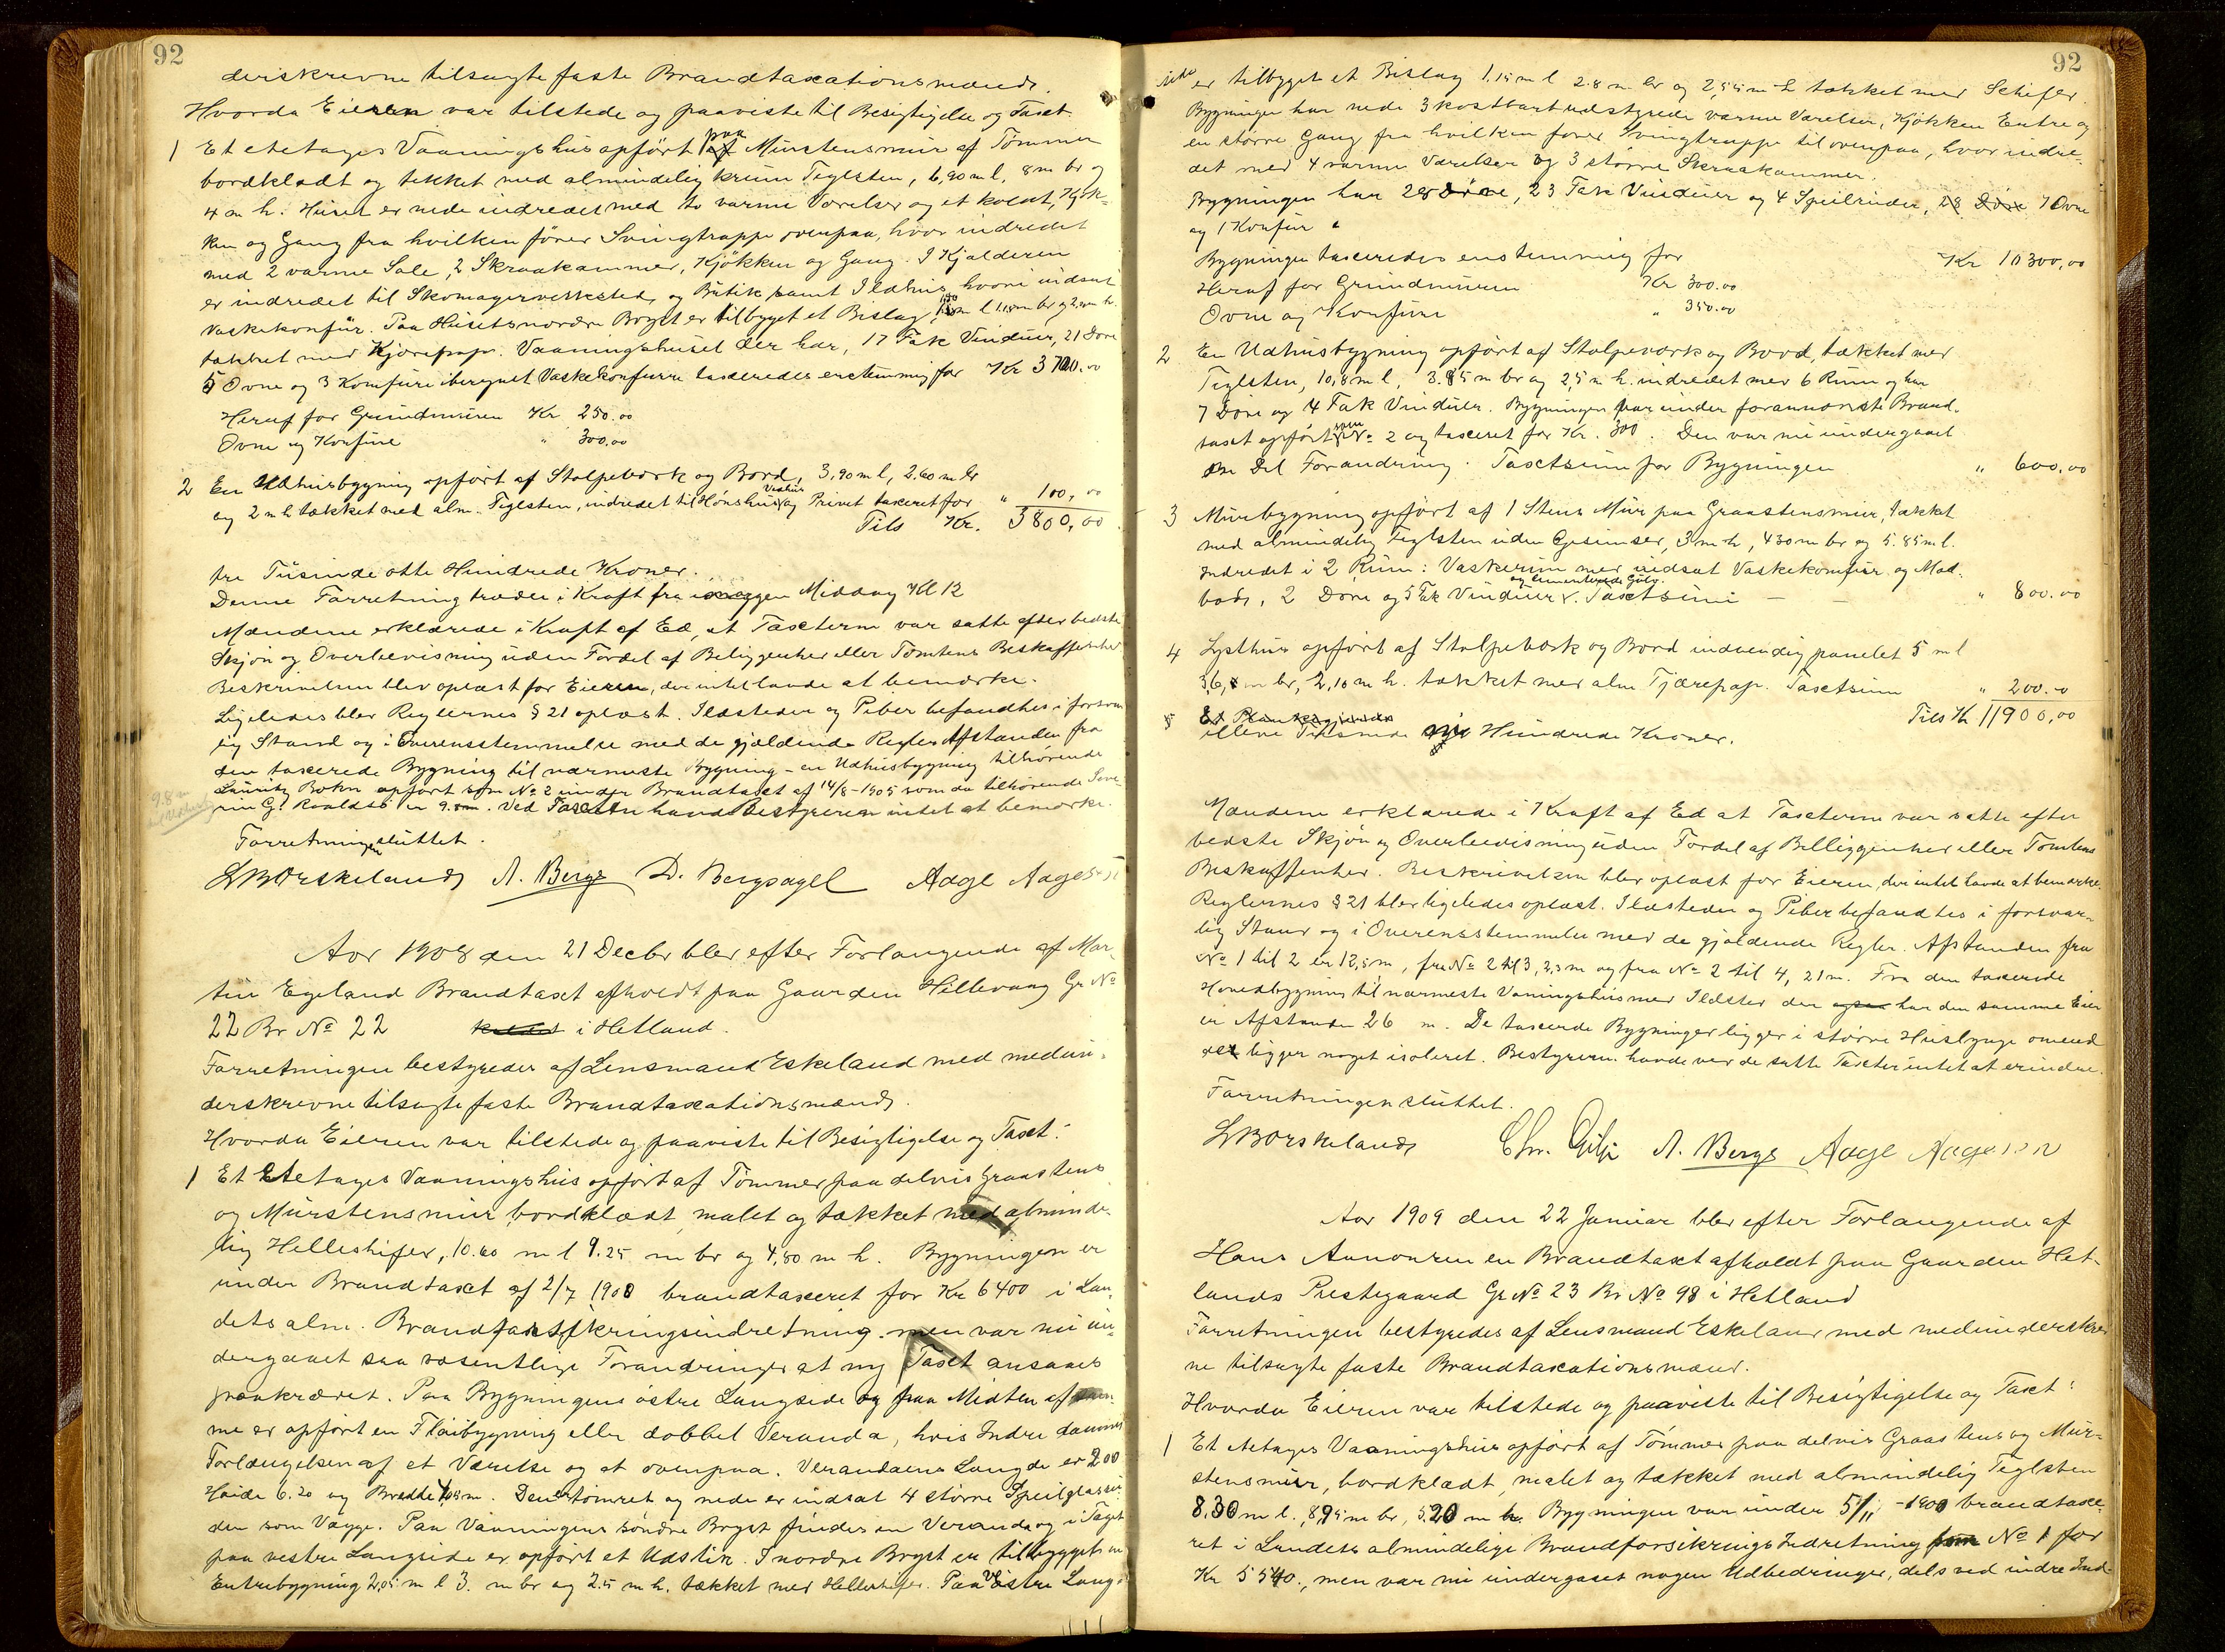 92
derskrevne tilsagte faste Brandtaxationsmænd.
Hvorda Eieren var tilstede og paaviste til Besigtigelse og Taxt
1 Et etetages Vaaningshus opført paa Murstensmur af Tømmer
bordklædt og tækket med almindelig krum Teglsten, 6,90 m l, 8 m br og
4 m h. Huset er nede indredet med to varme Værelser og et koldt, Kjøk-
ken og Gang fra hvilken fører Svingtrappe ovenpaa, hvor indredet
med 2 varme Sale, 2 Skraakammer, Kjøkken og Gang. I Kjælderen
er indredet til Skomagerverksted og Butik samt Ildhus, hvori indsat
Vaskekomfur. Paa Husets nordre Bryst er tilbygget et Bislag, l 1.15 m br og 2. m h.
tækket med Tjærepap. Vaaningshuset der har, 17 Fak Vinduer, 21 Døre
5 Ovne og 3 Komfure iberegnet Vaskekomfuret taxeredes enstemmig for Kr 3700.00
Heraf for Grundmuren Kr 250.00
Ovne og Komfure " 300.00
2 En Udhusbygning opført af Stolpeværk og Bord, 3,90 m l, 2,60 m br
og 2 m h tækket med alm. Teglsten, indredet til Hønshus, Vedhus og Privet taxeret for " 100,00
Tils Kr. 3800,00
tre Tusinde otte Hundrede Kroner.
Denne Forretning træder i Kraft fra Middag Kl 12
Mændene erklærede i Kraft af Ed, at Taxterne var satte efter bedste
Skjøn og Overbevisning uden Fordel af Beliggenhed eller Tomtens Beskaffenhed
Beskrivelsen blev oplæst for Eieren, der intet havde at bemærke.
Ligeledes blev Reglernes § 21 oplæst. Ildsteder og Piber befandtes i forsvar-
lig Stand og i Overensstemmelse med de gjældende Regler. Afstanden fra
den taxerede Bygning til nærmeste Bygning - en Udhusbygning tilhørende
Lauritz Bokn opført som No 2 under Brandtaxt af 14/8-1905 som da tilhørende Seve-
rin G. Roaldsø er 9.8 m. Ved Taxten havde Bestyreren intet at bemærke.
9.8 m
Forretningen sluttet.
LBOrskeland A. Berge D. Bergsagel Aage Aagesen
Aar 1908 den 21 Decbr blev efter Forlangende af Mar-
tin Egeland Brandtaxt afholdt paa Gaarden Hillevaag Gr No
22 Br No 22 i Hetland.
Forretningen bestyredes af Lensmand Eskeland med medun-
derskrevne tilsagte faste Brandtaxationsmænd.
Hvorda Eieren var tilstede og paaviste til Besigtigelse og Taxt:
1 Et Etetages Vaaningshus opført af Tømmer paa delvis Graastens
og Murstensmur bordklædt malet og tækket med alminde-
lig Helleskifer, 10.60 m l 9.25 m br og 4,50 m h. Bygningen er
under Brandtaxt af 2/7 1908 brandtaxeret for Kr 6400 i Lan-
dets alm. Brandforsikringsindretning men var nu un-
dergaaet saa væsentlige Forandringer at ny Taxt ansaaes
paakrævet. Paa Bygningens østre Langside og paa Midten af sam-
me er opført en Fløibygning eller dobbel Veranda, hvis Indre dannes
Forlængelsen af et Værelse og et ovenpaa. Verandaens Længde er 2.00
Høide 6.20 og Bredde m. Den er tømret og nede er indsat 4 større Speilglasru-
der som Vægge. Paa Vaaningens søndre Bryst findes en Veranda og i Taget
paa vestre Langside er opført et Udstik. I nordre Bryst er tilbygget en
Entrebygning 2,05 m l 3. m br og 2.5 m h. tækket med Helleskifer. Paa Vestre Lang-
92
side er tilbygget et Bislag 1,15 m l 2.8 m br og 2,55 m h tækket med Schifer.
Bygningen har nede 3 kostbart udstyrede varme Værelser, Kjøkken Entre og
en større Gang fra hvilken fører Svingtrappe til ovenpaa, hvor indre-
det med 4 varme Værelser og 3 større Skraakammer.
Bygningen har 28 Døre, 23 Fak Vinduer og 4 Speilruder, 28 Døre 7 Ovne
og 1 Komfur
Bygningen taxeredes enstemmig for Kr 10300,00
Heraf for Grundmuren Kr 300.00
Ovne og Komfure " 350.00
2 En Udhusbygning opført af Stolpeværk og Bord, tækket med
Teglsten, 10,8 m l, 3.85 m br og 2,5 m h. indredet med 6 Rum og har
7 Døre og 4 Fak Vinduer. Bygningen var under forannævnte Brand-
taxt opført som No 2 og taxeret for Kr. 300. Den var nu undergaaet
en Del Forandring. Taxtsum for Bygningen " 600,00
3 Murbygning opført af 1 Stens Mur paa Graastensmur, tækket
med almindelig Teglsten uden Gesimser, 3 m h, 4.30 m br og 5.85 m l.
Indredet i 2 Rum: Vaskerum med indsat Vaskekomfur og Mad-
bod, 2 Døre og 5 Fak Vinduer og cementerede Gulv. Taxtsum " 800.00
4 Lysthus opført af Stolpeværk og Bord indvendig panelet 5 m l
3,6 m br, 2,10 m h. tækket med alm Tjærepap. Taxtsum " 200.00
Tils Kr 11900,00
5 Et
elleve Tusinde ni Hundrede Kroner.
Mændene erklærede i Kraft af Ed at Taxterne var satte efter
bedste Skjøn og Overbevisning uden Fordel af Beliggenhed eller Tomtens
Beskaffenhed. Beskrivelsen blev oplæst for Eieren, der intet havde at bemærke.
Reglernes § 21 blev ligeledes oplæst. Ildsteder og Piber befandtes i forsvar-
lig Stand og i Overensstemmelse med de gjældende Regler. Afstanden fra
No 1 til 2 er 12,5 m, fra No 2 til 3, 2,3 m og fra No 2 til 4, 21 m. Fra den taxerede
Hovedbygning til nærmeste Vaningshus med Ildsted der har den samme Eier
er Afstanden 26 m. De taxerede Bygninger ligger i større Huslynge omend
det ligger noget isoleret. Bestyreren havde ved de satte Taxter intet at erindre.
Forretningen sluttet.
LBOrskeland Chr. Gilje A. Berge Aage Aagesen
Aar 1909 den 22 Januar blev efter Forlangende af
Hans Aanonsen en Brandtaxt afholdt paa Gaarden Het-
lands Prestegaard Gr No 23 Br No 98 i Hetland
Forretningen bestyredes af Lensmand Eskeland med medunderskrev-
ne tilsagte faste Brandtaxationsmænd.
Hvorda Eieren var tilstede og paaviste til Besigtigelse og Taxt:
1 Et etetages Vaaningshus opført af Tømmer paa delvis Graastens og Mur-
stensmur, bordklædt, malet og tækket med almindelig Teglsten
8.30 m l., 8,95 m br, 5.20 m h. Bygningen var under 5/11-1900 brandtaxe-
ret i Landets almindelige Brandforsikrings Indretning som No 1 for
Kr 5540., men var nu undergaaet nogen Udbedringer, dels ved indre Ind-